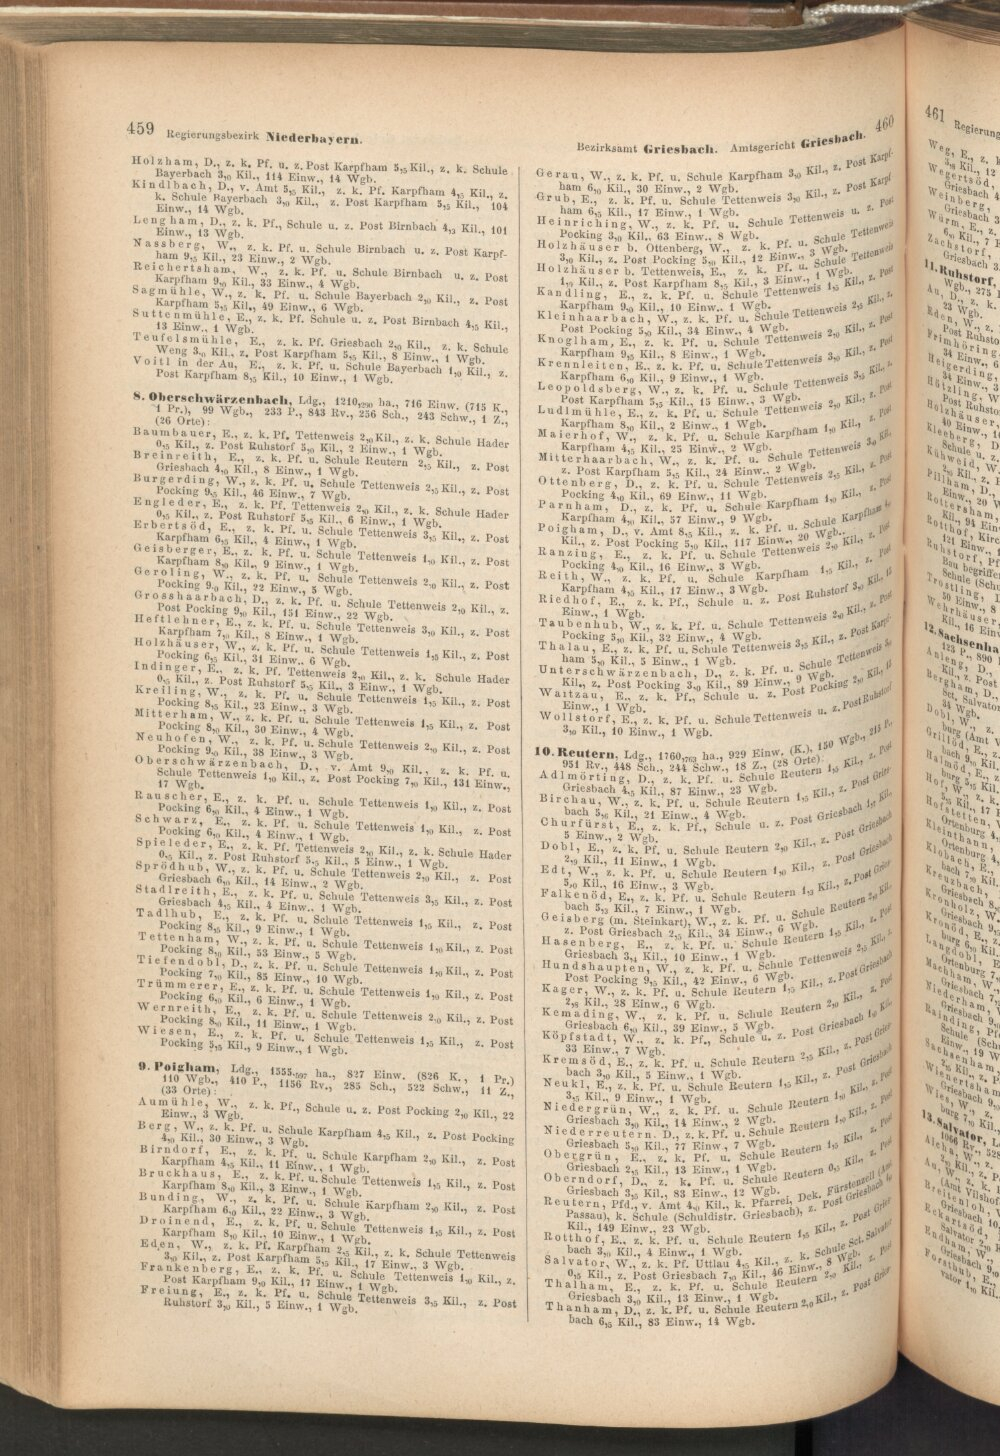 459 Regierungsbezirk Niederbayern.
Holzham, D., z. k. Pf. u. z. Post Karpfham 5,5 Kil., z. k. Schule
Bayerbach 3,0 Kil., 114 Einw., 14 Wgb.
Kindlbach, D., v. Amt 5,5 Kil., z. k. Pf. Karpfham 4,5 Kil., z.
k. Schule Bayerbach 3,0 Kil., z. Post Karpfham 5,5 Kil., 104
Einw., 14 Wgb.
Lengham, D., z. k. Pf., Schule u. z. Post Birnbach 4,3 Kil., 101
Einw., 13 Wgb.
Nassberg, W., z. k. Pf. u. Schule Birnbach u. z. Post Karpf-
ham 9,5 Kil., 23 Einw., 2 Wgb.
Reichertsham, W., z. k. Pf. u. Schule Birnbach u. z. Post
Karpfham 9,0 Kil., 33 Einw., 4 Wgb.
Sagmühle, W., z. k. Pf. u. Schule Bayerbach 2,0 Kil., z. Post
Karpfham 5,5 Kil., 49 Einw., 6 Wgb.
Suttenmühle, E., z. k. Pf. Schule u. z. Post Birnbach 4,5 Kil.,
13 Einw., 1 Wgb.
Teufelsmühle, E., z. k. Pf. Griesbach 2,0 Kil., z. k. Schule
Weng 3,0 Kil., z. Post Karpfham 5,5 Kil., 8 Einw., 1 Wgb.
Voitl in der Au, E., z. k. Pf. u. Schule Bayerbach 1,0 Kil., z.
Post Karpfham 8,5 Kil., 10 Einw., 1 Wgb.
8. Oberschwärzenbach, Ldg., 1210,290 ha., 716 Einw. (715 K.,
1 Pr.), 99 Wgb., 233 P., 843 Rv., 256 Sch., 243 Schw., 1 Z.,
(26 Orte):
Baumbauer, E., z. k. Pf. Tettenweis 2,0 Kil., z. k. Schule Hader
0,5 Kil., z. Post Ruhstorf 5,0 Kil., 2 Einw., 1 Wgb.
Breinreith, E., z. k. Pf. u. Schule Reutern 2,5 Kil., z. Post
Griesbach 4,0 Kil., 8 Einw., 1 Wgb.
Burgerding, W., z. k. Pf. u. Schule Tettenweis 2,5 Kil., z. Post
Pocking 9,5 Kil., 46 Einw., 7 Wgb.
Engleder, E., z. k. Pf. Tettenweis 2,0 Kil., z. k. Schule Hader
0,5 Kil., z. Post Ruhstorf 5,5 Kil., 6 Einw., 1 Wgb.
Erbertsöd, E., z. k. Pf. u. Schule Tettenweis 3,5 Kil., z. Post
Karpfham 6,5 Kil., 4 Einw., 1 Wgb.
Geisberger, E., z. k. Pf. u. Schule Tettenweis 1,0 Kil., z. Post
Karpfham 8,0 Kil., 9 Einw., 1 Wgb.
Geroling, W., z. k. Pf. u. Schule Tettenweis 2,0 Kil., z. Post
Pocking 9,0 Kil., 22 Einw., 5 Wgb.
Grosshaarbach, D., z. k. Pf. u. Schule Tettenweis 2,0 Kil., z.
Post Pocking 9,0 Kil., 151 Einw., 22 Wgb.
Heftlehner, E., z. k. Pf. u. Schule Tettenweis 3,0 Kil., z. Post
Karpfham 7,0 Kil., 8 Einw., 1 Wgb.
Holzhäuser, W., z. k. Pf. u. Schule Tettenweis 1,5 Kil., z. Post
Pocking 6,5 Kil., 31 Einw., 6 Wgb.
Indinger, E., z. k. Pf. Tettenweis 2,0 Kil., z. k. Schule Hader
0,5 Kil., z. Post Ruhstorf 5,5 Kil., 3 Einw., 1 Wgb.
Kreiling, W., z. k. Pf. u. Schule Tettenweis 1,5 Kil., z. Post
Pocking 8,5 Kil., 23 Einw., 3 Wgb.
Mitterham, W., z. k. Pf. u. Schule Tettenweis 1,5 Kil., z. Post
Pocking 8,0 Kil., 30 Einw., 4 Wgb.
Neuhofen, W., z. k. Pf. u. Schule Tettenweis 2,0 Kil., z. Post
Pocking 9,0 Kil., 38 Einw., 3 Wgb.
Oberschwärzenbach, D., v. Amt 9,0 Kil., z. k. Pf. u.
Schule Tettenweis 1,0 Kil., z. Post Pocking 7,0 Kil., 131 Einw.,
17 Wgb.
Rauscher, E., z. k. Pf. u. Schule Tettenweis 1,0 Kil., z. Post
Pocking 6,0 Kil., 4 Einw., 1 Wgb.
Schwarz, E., z. k. Pf. u. Schule Tettenweis 1,0 Kil., z. Post
Pocking 6,0 Kil., 4 Einw., 1 Wgb.
Spieleder, E., z. k. Pf. Tettenweis 2,0 Kil., z. k. Schule Hader
0,5 Kil., z. Post Ruhstorf 5,5 Kil., 5 Einw., 1 Wgb.
Sprödhub, W., z. k. Pf. u. Schule Tettenweis 2,0 Kil., z. Post
Griesbach 6,0 Kil., 14 Einw., 2 Wgb.
Stadlreith, E., z. k. Pf. u. Schule Tettenweis 3,5 Kil., z. Post
Griesbach 4,5 Kil., 4 Einw., 1 Wgb.
Tadlhub, E., z. k. Pf. u. Schule Tettenweis 1,5 Kil., z. Post
Pocking 8,5 Kil., 9 Einw., 1 Wgb.
Tettenham, W., z. k. Pf. u. Schule Tettenweis 1,0 Kil., z. Post
Pocking 8,0 Kil., 53 Einw., 5 Wgb.
Tiefendobl, D., z. k. Pf. u. Schule Tettenweis 1,0 Kil., z. Post
Pocking 7,0 Kil., 85 Einw., 10 Wgb.
Trümmerer, E., z. k. Pf. u. Schule Tettenweis 1,0 Kil., z. Post
Pocking 6,0 Kil., 6 Einw., 1 Wgb.
Wernreith, E., z. k. Pf. u. Schule Tettenweis 2,0 Kil., z. Post
Pocking 8,0 Kil., 11 Einw., 1 Wgb.
Wiesen, E., z. k. Pf. u. Schule Tettenweis 1,5 Kil., z. Post
Pocking 5,5 Kil., 9 Einw., 1 Wgb.
9. Poigham, Ldg., 1555,597 ha., 827 Einw. (826 K., 1 Pr.)
110 Wgb., 410 P., 1156 Rv., 285 Sch., 522 Schw., 11 Z.,
(33 Orte):
Aumühle, W., z. k. Pf., Schule u. z. Post Pocking 2,0 Kil., 22
Einw., 3 Wgb.
Berg, W., z. k. Pf. u. Schule Karpfham 4,5 Kil., z. Post Pocking
4,0 Kil., 30 Einw., 3 Wgb.
Birndorf, E., z. k. Pf. u. Schule Karpfham 2,0 Kil., z. Post
Karpfham 4,5 Kil., 11 Einw., 1 Wgb.
Bruckhaus, E., z. k. Pf. u. Schule Tettenweis 1,5 Kil., z. Post
Karpfham 8,0 Kil., 3 Einw., 1 Wgb.
Bunding, W., z. k. Pf. u. Schule Karpfham 2,0 Kil., z. Post
Karpfham 6,0 Kil., 22 Einw., 3 Wgb.
Droinend, E., z. k. Pf. u. Schule Tettenweis 1,5 Kil., z. Post
Karpfham 8,0 Kil., 10 Einw., 1 Wgb.
Eden, W., z. k. Pf. Karpfham 2,5 Kil., z. k. Schule Tettenweis
3,0 Kil., z. Post Karpfham 5,5 Kil., 17 Einw., 3 Wgb.
Frankenberg, E., z. k. Pf. u. Schule Tettenweis 1,0 Kil., z.
Post Karpfham 9,0 Kil., 17 Einw., 1 Wgb.
Freiung, E., z. k. Pf. u. Schule Tettenweis 3,5 Kil., z. Post
Ruhstorf 3,0 Kil., 5 Einw., 1 Wgb.
Bezirksamt Griesbach. Amtsgericht Griesbach. 460
Gerau, W., z. k. Pf. u. Schule Karpfham 3,0 Kil., z. Post Karpf-
ham 6,0 Kil., 30 Einw., 2 Wgb.
Grub, E., z. k. Pf. u. Schule Tettenweis 3,0 Kil., z. Post Karpf
ham 6,5 Kil., 17 Einw., 1 Wgb.
Heinriching, W., z. k. Pf. u. Schule Tettenweis u. z. Post
Pocking 3,0 Kil., 63 Einw., 8 Wgb.
Holzhäuser b. Ottenberg, W., z. k. Pf. u. Schule Tettenweis
3,0 Kil., z. Post Pocking 5,0 Kil., 12 Einw., 3 Wgb.
Holzhäuser b. Tettenweis, E., z. k. Pf. u. Schule Tettenweis
1,0 Kil., z. Post Karpfham 8,5 Kil., 3 Einw., 1 Wgb.
Kandling, E., z. k. Pf. u. Schule Tettenweis 1,5 Kil., z. Post
Karpfham 9,0 Kil., 10 Einw., 1 Wgb.
Kleinhaarbach, W., z. k. Pf. u. Schule Tettenweis 2,5 Kil., z.
Post Pocking 5,0 Kil., 34 Einw., 4 Wgb.
Knoglham, E., z. k. Pf. u. Schule Tettenweis 2,0 Kil., z. Post
Karpfham 9,5 Kil., 8 Einw., 1 Wgb.
Krennleiten, E., z. k. Pf. u. Schule Tettenweis 3,0 Kil., z. Post
Karpfham 6,0 Kil., 9 Einw., 1 Wgb.
Leopoldsberg, W., z. k. Pf. u. Schule Tettenweis 3,5 Kil., z.
Post Karpfham 5,5 Kil., 15 Einw., 3 Wgb.
Ludlmühle, E., z. k. Pf. u. Schule Tettenweis 2,0 Kil., z. Post
Karpfham 8,0 Kil., 2 Einw., 1 Wgb.
Maierhof, W., z. k. Pf. u. Schule Karpfham 1,0 Kil., z. Post
Karpfham 4,5 Kil., 25 Einw., 2 Wgb.
Mitterhaarbach, W., z. k. Pf. u. Schule Tettenweis 3,0 Kil.,
z. Post Karpfham 5,5 Kil., 24 Einw., 2 Wgb.
Ottenberg, D., z. k. Pf. u. Schule Tettenweis 2,5 Kil., z. Post
Pocking 4,0 Kil., 69 Einw., 11 Wgb.
Parnham, D., z. k. Pf. u. Schule Karpfham 1,0 Kil., z. Post
Karpfham 4,0 Kil., 57 Einw., 9 Wgb.
Poigham, D., v. Amt 8,5 Kil., z. k. Pf. u. Schule Karpfham
Kil., z. Post Pocking 5,0 Kil., 117 Einw., 20 Wgb.
Ranzing, E., z. k. Pf. u. Schule Tettenweis 2,0 Kil., z. Post
Pocking 4,0 Kil., 16 Einw., 3 Wgb.
Reith, W., z. k. Pf. u. Schule Karpfham 1,5 Kil., z. Post
Karpfham 4,5 Kil., 17 Einw., 3 Wgb.
Riedhof, E., z. k. Pf., Schule u. z. Post Ruhstorf 3,0 Kil., 12
Einw., 1 Wgb.
Taubenhub, W., z. k. Pf. u. Schule Tettenweis 2,0 Kil., z. Post
Pocking 5,0 Kil., 32 Einw., 4 Wgb.
Thalau, E., z. k. Pf. u. Schule Tettenweis 3,5 Kil., z. Post Karpf-
ham 5,0 Kil., 5 Einw., 1 Wgb.
Unterschwärzenbach, D., z. k. Pf. u. Schule Tettenweis
Kil., z. Post Pocking 3,0 Kil., 89 Einw., 9 Wgb.
Waitzau, E., z. k. Pf., Schule u. z. Post Pocking 2,0 Kil.,
Einw., 1 Wgb.
Wollstorf, E., z. k. Pf. u. Schule Tettenweis u. z. Post Ruhstorf
3,0 Kil., 10 Einw., 1 Wgb.
10. Reutern, Ldg., 1760,763 ha., 929 Einw. (K.), 150 Wgb., 215 P.,
951 Rv., 448 Sch., 244 Schw., 18 Z., (28 Orte):
Adlmörting, D., z. k. Pf. u. Schule Reutern 1,5 Kil., z. Post
Griesbach 4,5 Kil., 87 Einw., 23 Wgb.
Birchau, W., z. k. Pf. u. Schule Reutern 1,5 Kil., z. Post Gries-
bach 5,0 Kil., 21 Einw., 4 Wgb.
Churfürst, E., z. k. Pf., Schule u. z. Post Griesbach 1,7 Kil.,
5 Einw., 2 Wgb.
Dobl, E., z. k. Pf. u. Schule Reutern 2,0 Kil., z. Post Griesbach
2,9 Kil., 11 Einw., 1 Wgb.
Edt, W., z. k. Pf. u. Schule Reutern 1,0 Kil., z. Post Griesbach
5,0 Kil., 16 Einw., 3 Wgb.
Falkenöd, E., z. k. Pf. u. Schule Reutern 1,3 Kil., z. Post Gries-
bach 5,3 Kil., 7 Einw., 1 Wgb.
Geisberg (m. Steinkart), W., z. k. Pf. u. Schule Reutern 2,0 Kil.,
z. Post Griesbach 2,5 Kil., 34 Einw., 6 Wgb.
Hasenberg, E., z. k. Pf. u. Schule Reutern 1,5 Kil., z. Post
Griesbach 3,4 Kil., 10 Einw., 1 Wgb.
Hundshaupten, W., z. k. Pf. u. Schule Tettenweis 2,5 Kil., z.
Post Pocking 9,5 Kil., 42 Einw., 6 Wgb.
Kager, W., z. k. Pf. u. Schule Reutern 1,5 Kil., z. Post Griesbach
2,8 Kil., 28 Einw., 6 Wgb.
Kemading, W., z. k. Pf. u. Schule Reutern 2,0 Kil., z. Post
Griesbach 6,0 Kil., 39 Einw., 5 Wgb.
Köpfstadt, W., z. k. Pf., Schule u. z. Post Griesbach 1,0 Kil.,
33 Einw., 7 Wgb.
Kremsöd, E., z. k. Pf. u. Schule Reutern 2,5 Kil., z. Post Gries-
bach 3,0 Kil., 5 Einw., 1 Wgb.
Neukl, E., z. k. Pf. u. Schule Reutern 1,5 Kil., z. Post Griesbach
3,5 Kil., 9 Einw., 1 Wgb.
Niedergrün, W., z. k. Pf. u. Schule Reutern 1,0 Kil., z. Post
Griesbach 3,0 Kil., 14 Einw., 2 Wgb.
Niederreutern, D., z. k. Pf. u. Schule Reutern 1,0 Kil., z. Post
Griesbach 5,0 Kil., 77 Einw., 7 Wgb.
Obergrün, E., z. k. Pf. u. Schule Reutern 1,5 Kil., z. Post
Griesbach 2,5 Kil., 13 Einw., 1 Wgb.
Oberndorf, D., z. k. Pf. u. Schule Reutern 0,5 Kil., z. Post
Griesbach 3,5 Kil., 83 Einw., 12 Wgb.
Reutern, Pfd., v. Amt 4,0 Kil., k. Pfarrei, Dek. Fürstenzell
Passau), k. Schule (Schuldistr. Griesbach), z. Post Griesbach
Kil., 149 Einw., 23 Wgb.
Rotthof, E., z. k. Pf. u. Schule Reutern 1,5 Kil., z. Post Gries-
bach 3,0 Kil., 4 Einw., 1 Wgb.
Salvator, W., z. k. Pf. Uttlau 4,5 Kil., z. k. Schule Sct. Salvator
0,5 Kil., z. Post Griesbach 7,0 Kil., 46 Einw., 8 Wgb.
Thalham, E., z. k. Pf. u. Schule Reutern 2,0 Kil., z. Post
Griesbach 3,0 Kil., 13 Einw., 1 Wgb.
Thanham, D., z. k. Pf. u. Schule Reutern 2,0 Kil., z. Post Gries-
bach 6,5 Kil., 83 Einw., 14 Wgb.
461 Regierung
Weg, E., z.
Wegertsöd,
Griesbach 4
Weinberg,
Griesbach 3
Wurm, E., z.
Zachstorf,
Griesbach 3
11. Ruhstorf,
12. Sachsenha
13. Salvator,